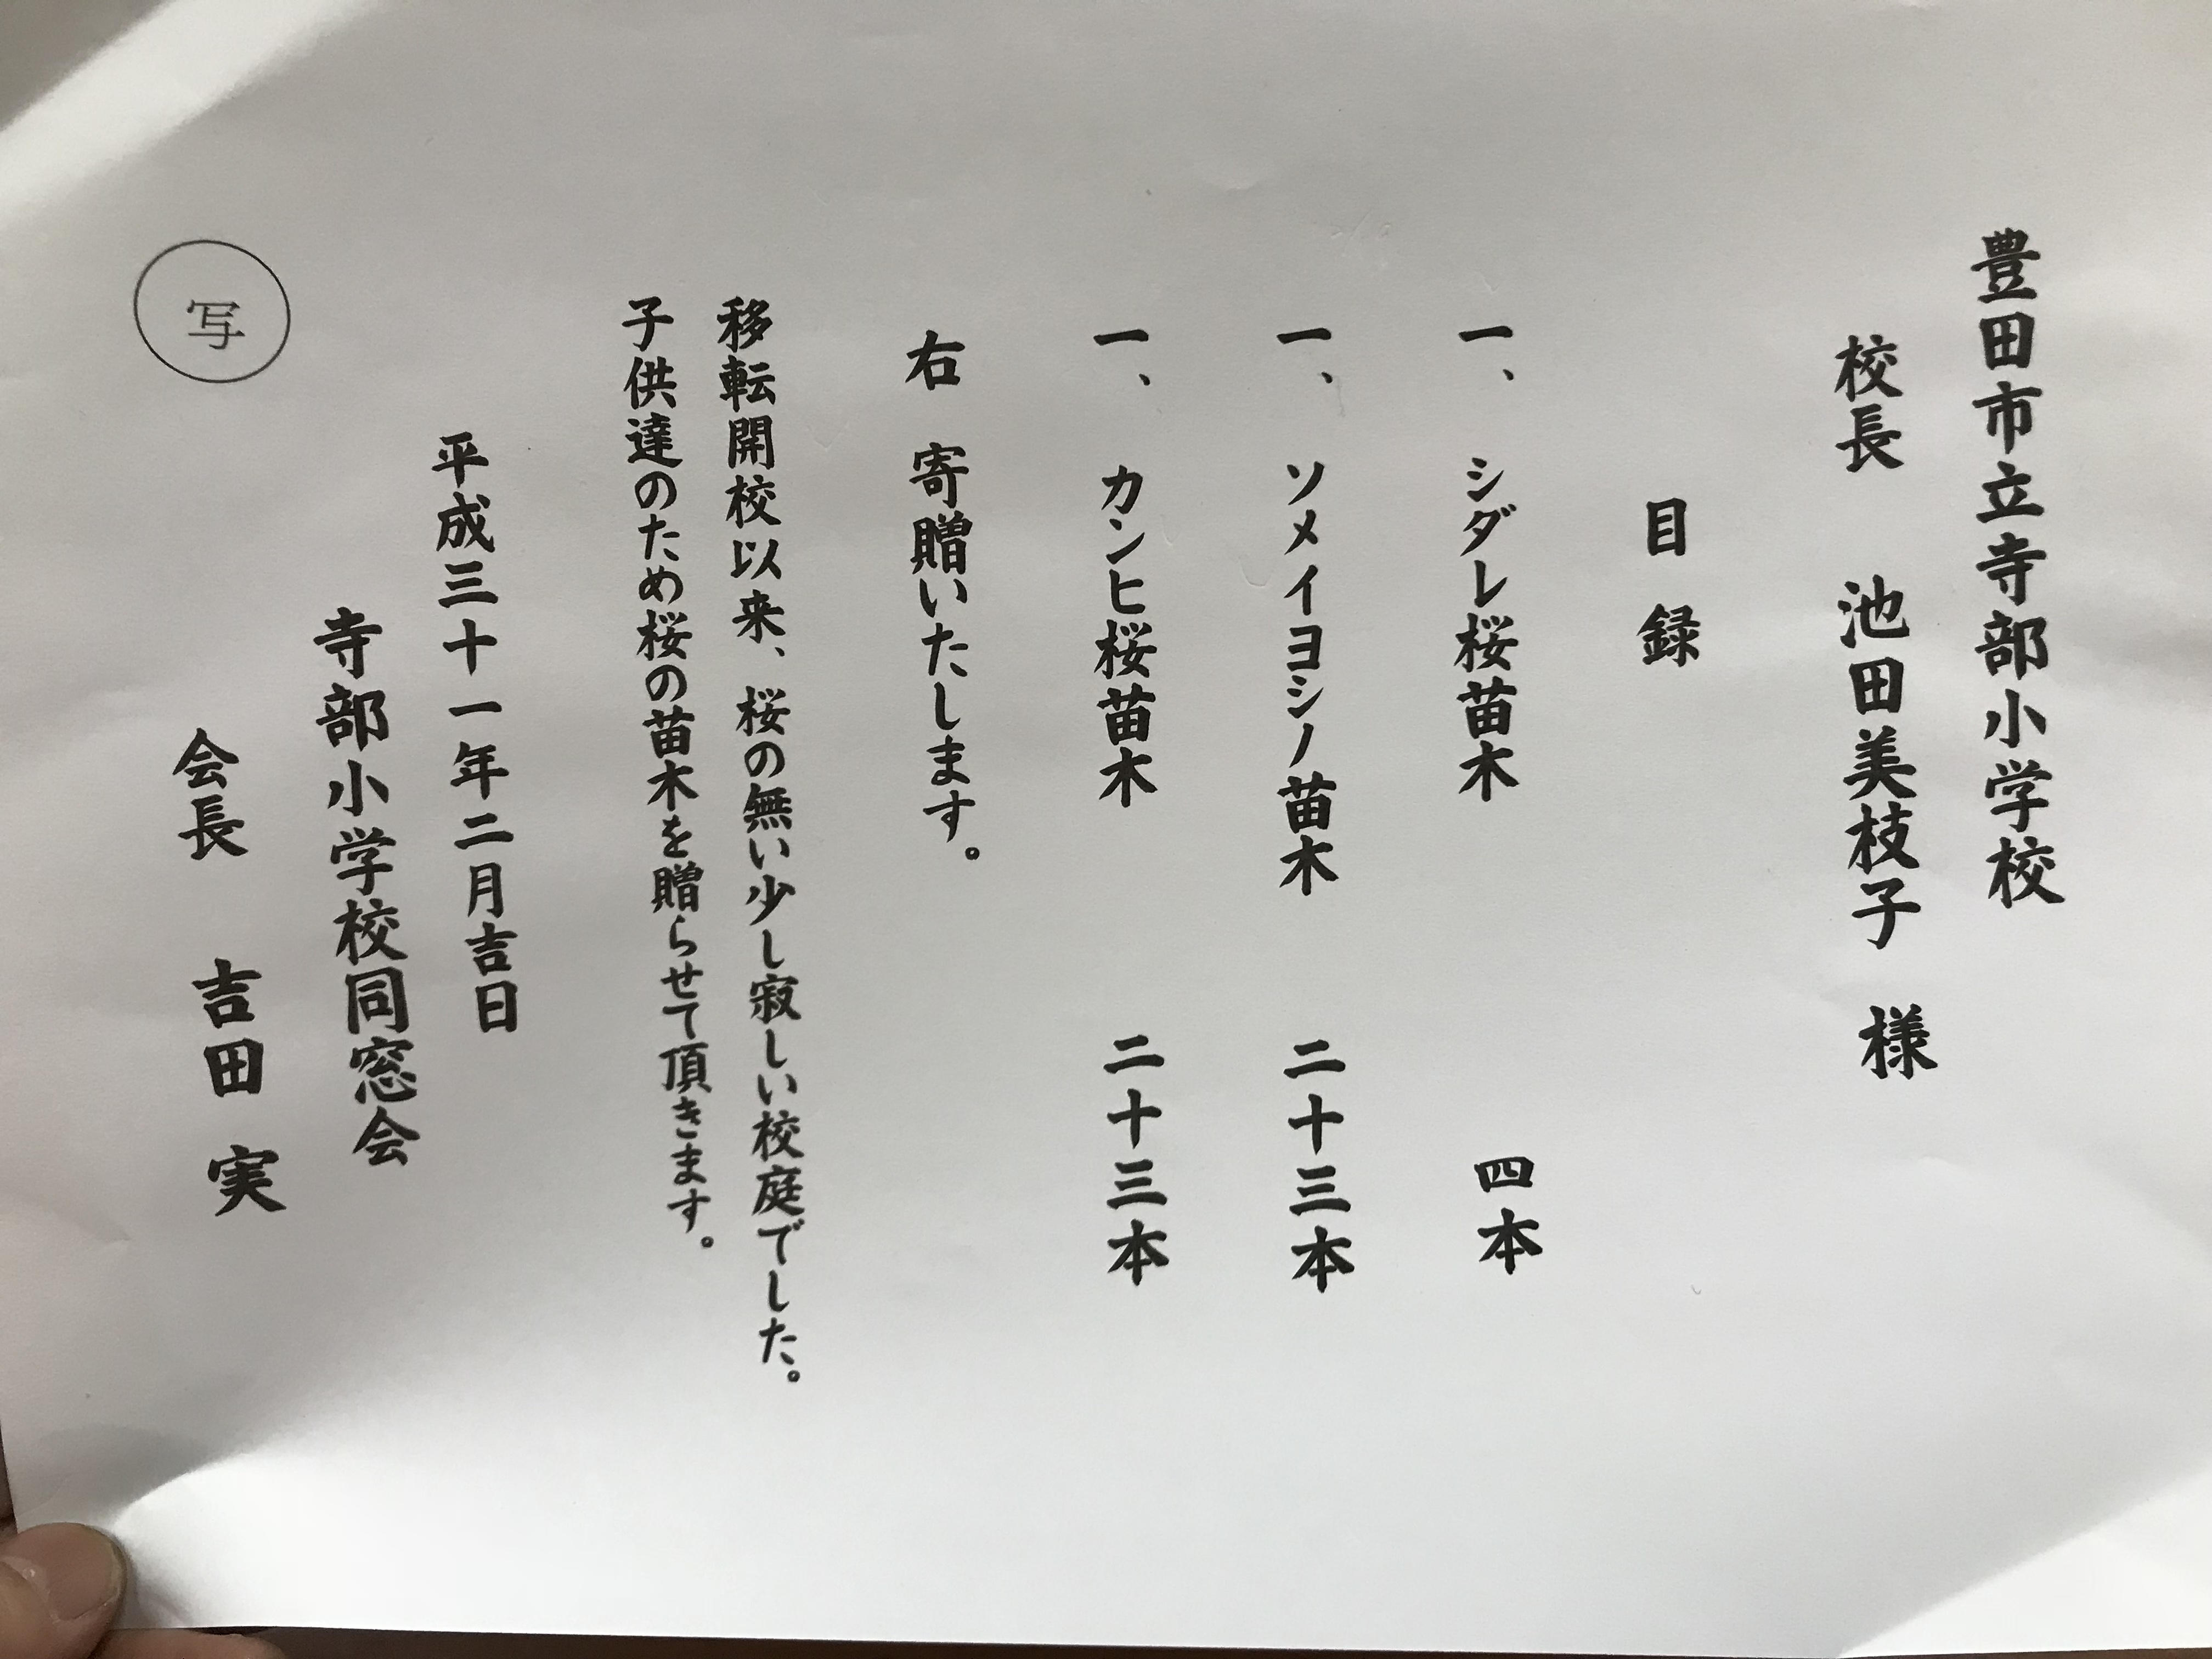 豊田市立寺部小学校
校長　池田美枝子　様
目　録
一、　シダレ桜苗木　四本
一、　ソメイヨシノ苗木　二十三本
一、　カンヒ桜苗木　二十三本
右　寄贈いたします。
移転開校以来、桜の無い少し寂しい校庭でした。
子供達のため桜の苗木を贈らせて頂きます。
平成三十一年二月吉日
寺部小学校同窓会
会長　吉田　実
写